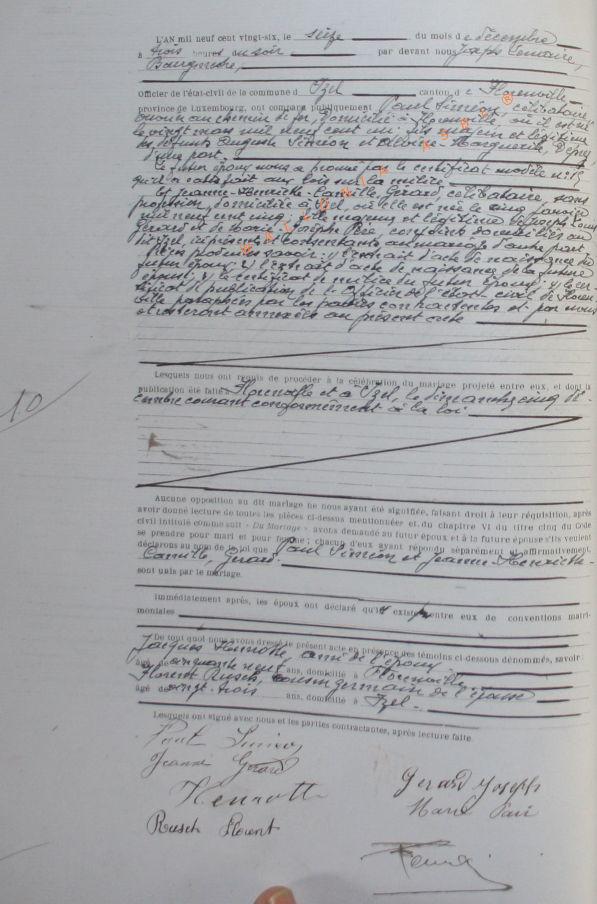 L'AN mil neuf cent vingt-six, le seize du mois de décembre
à trois heures du soir par devant nous Joseph Lemaire,
Bourgmestre,
Officier de l'état-civil de la commune d'Izel canton de Florenville
province de Luxembourg, ont comparu publiquement Paul Simon, célibataire,
ouvrier au chemin de fer, domicilié à Florenville, où il est né
le vingt mars mil neuf cent un; fils majeur et légitime
des défunts Auguste Simon et Marguerite
d'une part.
Le futur époux nous a prouvé par le certificat modèle n° 15
qu'il a satisfait aux lois sur la milice.
Et Jeanne-Henriette-Camille Gérard célibataire, sans
profession, domiciliée à Izel, où elle est née le cinq janvier
mil neuf cent cinq; fille majeure et légitime de Joseph Louis
Gérard et de Marie Joseph conjoints domiciliés au
dit Izel, ici présents et consentants au mariage d'autre part.
Pièces produites savoir: 1) l'extrait d'acte de naissance du
futur époux; 2) l'extrait d'acte de naissance de la future
épouse; 3) le certificat de milice du futur époux; 4) le cer-
tificat de publication de l'Officier de l'état-civil de Floren-
ville paraphées par les parties contractantes et par nous
et resteront annexées au présent acte
10
Lesquels nous ont requis de procéder à la célébration du mariage projeté entre eux, et dont la
publication été faite à Florenville et à Izel, le dimanche cinq dé-
cembre courant conformément à la loi.
Aucune opposition au dit mariage ne nous ayant été signifiée, faisant droit à leur réquisition, après
avoir donné lecture de toutes les pièces ci-dessus mentionnées et du chapitre VI du titre cinq du Code
civil intitulé comme suit « Du Mariage », avons demandé au futur époux et à la future épouse s'ils veulent
se prendre pour mari et pour femme; chacun d'eux ayant répondu séparément et affirmativement,
déclarons au nom de la loi que Paul Simon et Jeanne-Henriette-
Camille, Gérard.
sont unis par le mariage.
Immédiatement après, les époux ont déclaré qu'il existe entre eux de conventions matri-
moniales
De tout quoi nous avons dressé le présent acte en présence des témoins ci-dessous dénommés, savoir
Jacques Henrotte, ami de l'époux
âgé de cinquante neuf ans, domicilié à Florenville
Florent Rusch, cousin germain de l'épouse
âgé de vingt-trois ans, domicilié à Izel.
Lesquels ont signé avec nous et les parties contractantes, après lecture faite.
Paul Simon
Jeanne Gérard
Henrotte
Gerard Joseph
Rusch Florent
Marie